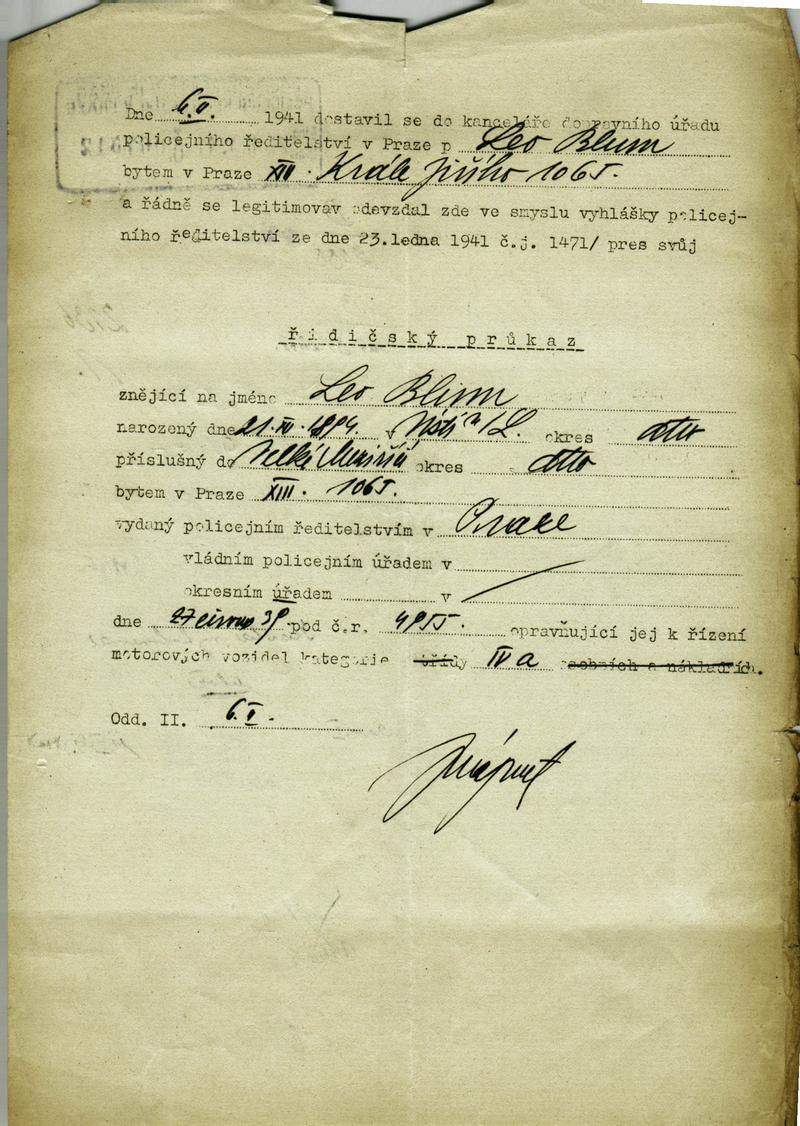 Dne 6.II. 1941 dostavil se do kanceláře dopravního úřadu
policejního ředitelství v Praze p Leo Blum
bytem v Praze XIII. Krále Jiřího 1065.
a řádně se legitimovav odevzdal zde ve smyslu vyhlášky policej-
ního ředitelství ze dne 23.ledna 1941 č.j. 1471/ pres svůj
řidičský průkaz
znějící na jméno Leo Blum
narozený dne 21. 1894. v /L. okres dtto
příslušný do Velké okres dtto
bytem v Praze XIII. 1065.
vydaný policejním ředitelstvím v Praze
vládním policejním úřadem v
okresním úřadem v
dne 27 39 pod č.r. 4955. opravňující jej k řízení
motorových vozidel kategorie třídy IV a osobních a nákladních.
Odd. II. 6.